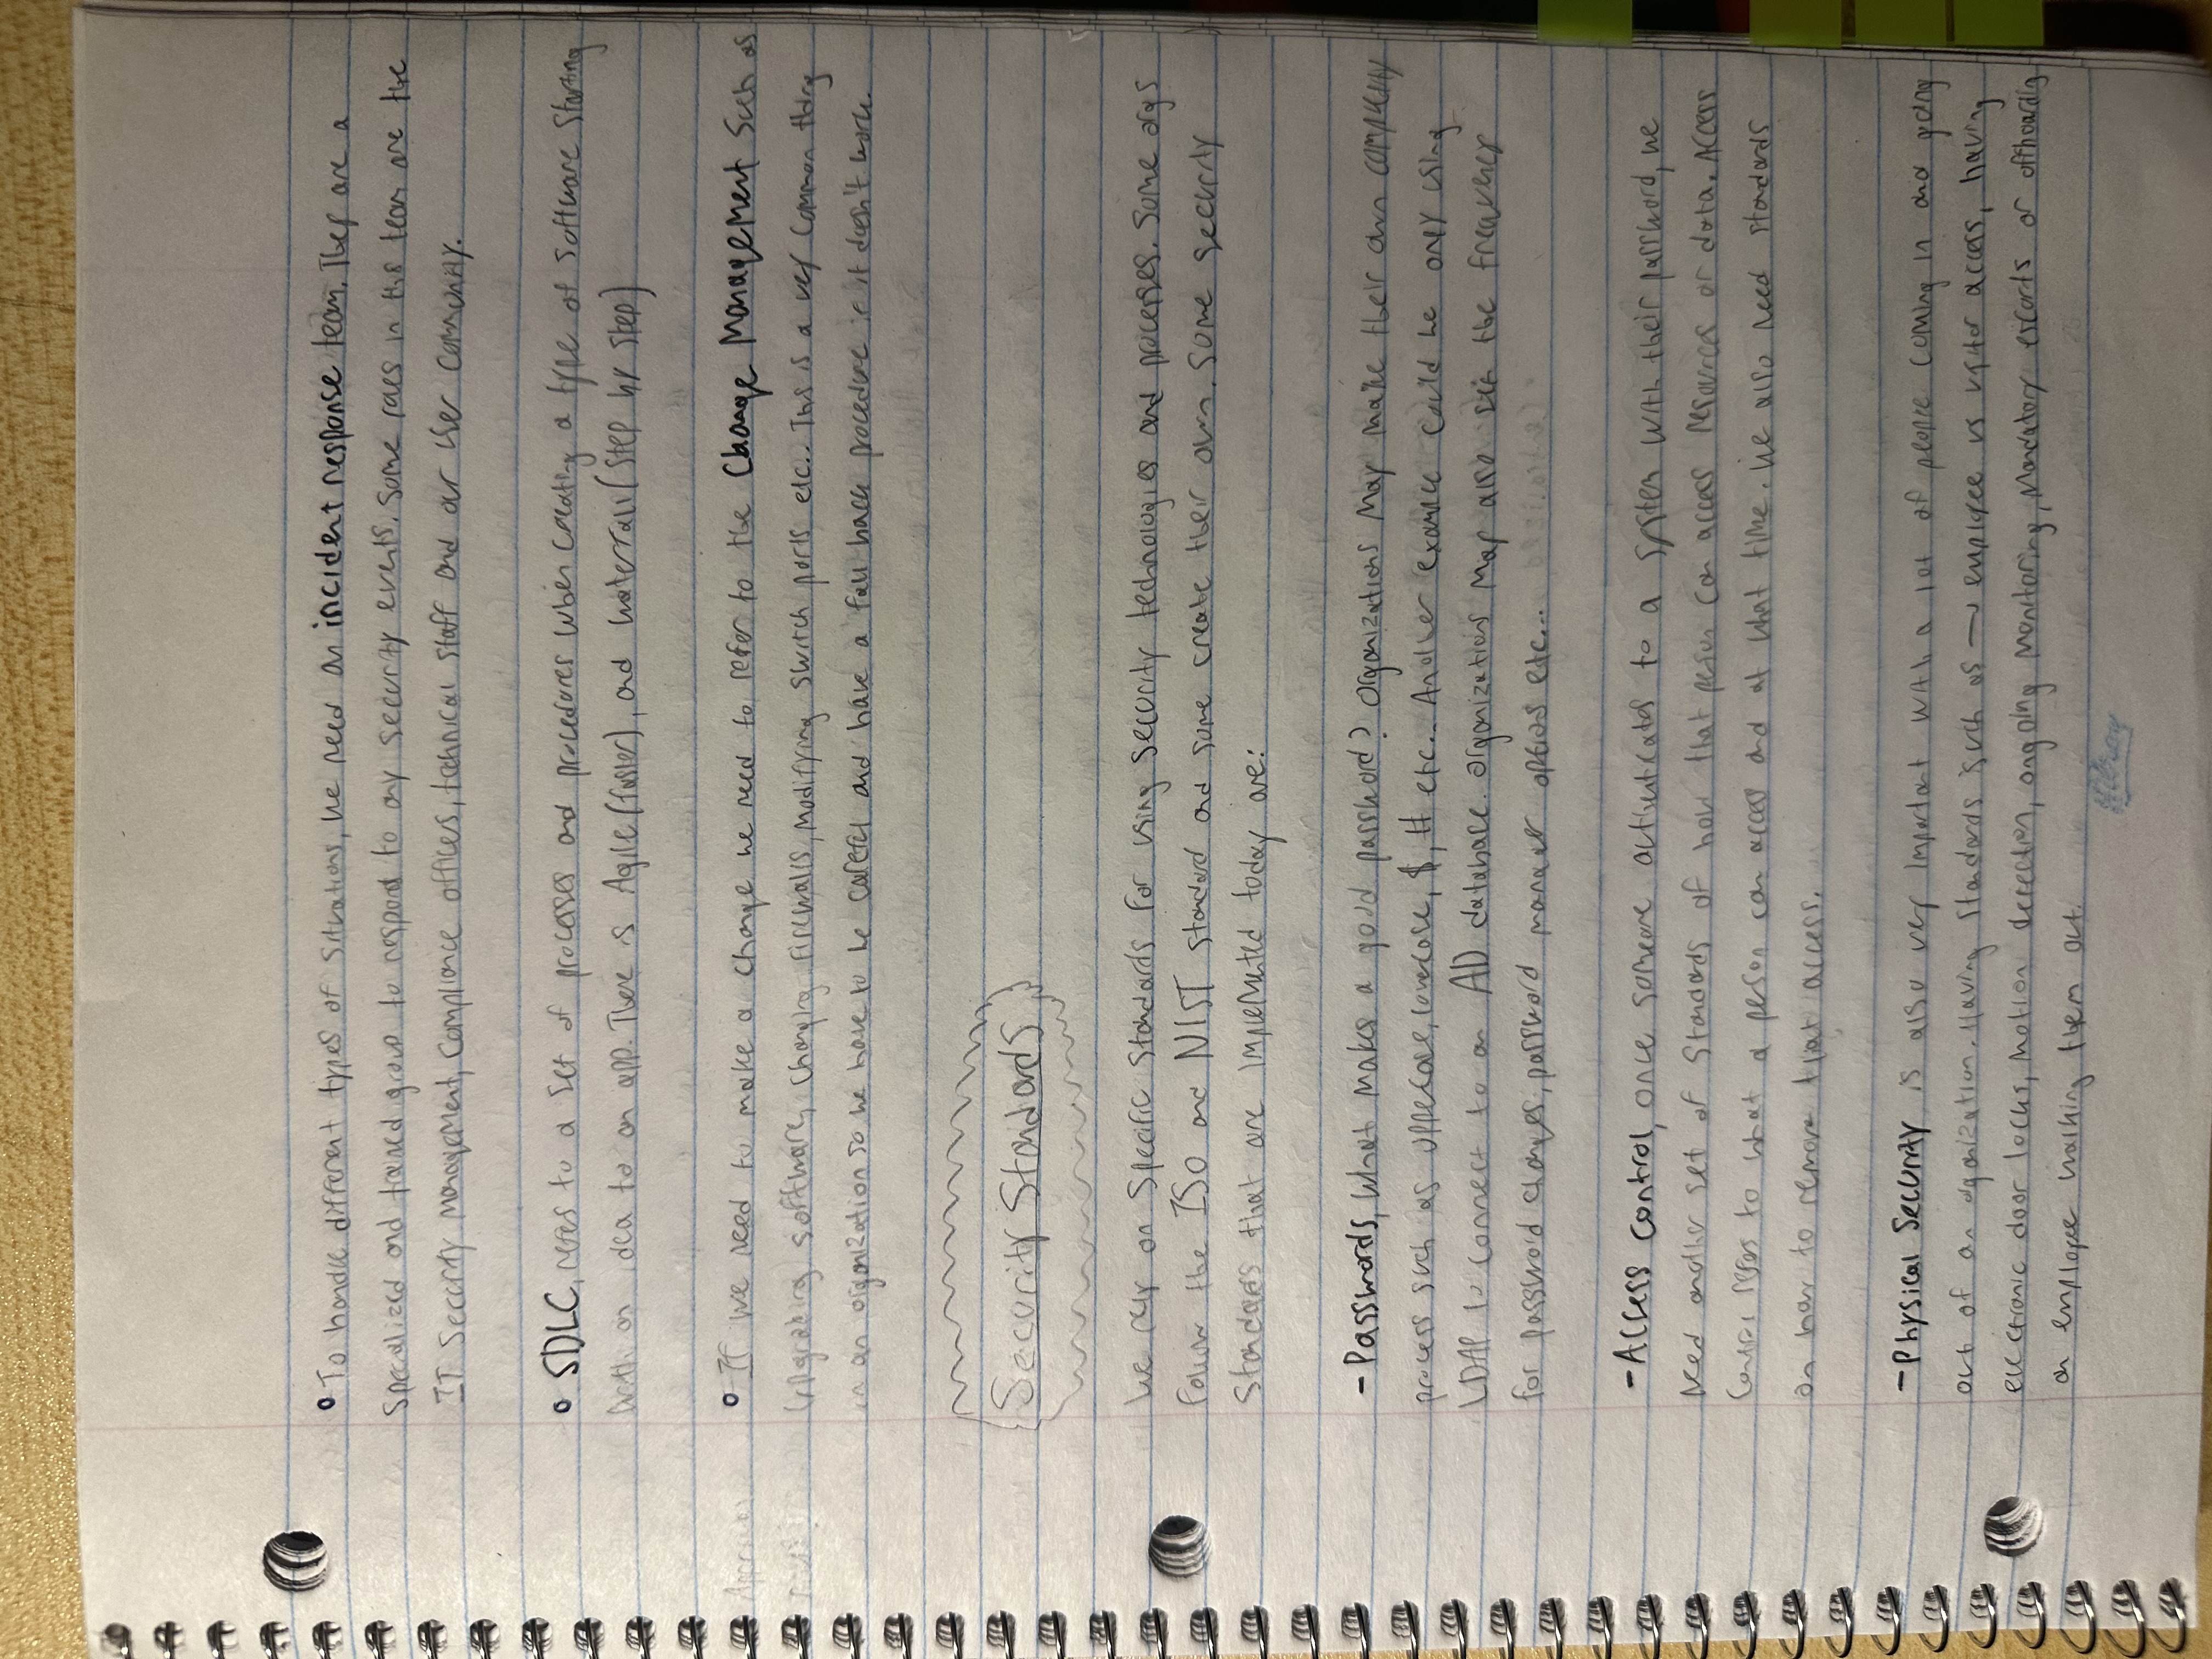 • To handle different types of situations, we need an incident response team. They are a
specialized and trained group to respond to any security events. Some roles in this team are the
IT Security management, compliance officers, technical staff and our user community.
• SDLC, refers to a set of processes and procedures when creating a type of software starting
with an idea to an app. There is Agile (faster), and waterfall (step by step)
• If we need to make a change we need to refer to the Change Management such as
upgrading software, changing firewalls, modifying switch ports etc.. This is a very common thing
in an organization so we have to be careful and have a fall back procedure if it doesn't work.
Security Standards
We rely on specific standards for using security technologies and processes. Some orgs
follow the ISO and NIST standard and some create their own. Some security
standards that are implemented today are:
- Passwords, what makes a good password? Organizations may make their own complexity
process such as uppercase, lowercase, $, # etc.. Another example could be only using
LDAP to connect to an AD database. Organizations may also set the frequency
for password changes, password manager options etc...
- Access control, once someone authenticates to a system with their password, we
need another set of standards of how that person can access resources or data. Access
Control refers to what a person can access and at what time. We also need standards
on how to remove that access.
- Physical Security is also very important with a lot of people coming in and going
out of an organization. Having standards such as → employee vs visitor access, having
electronic door locks, motion detection, ongoing monitoring, mandatory escorts or offboarding
an employee walking them out.